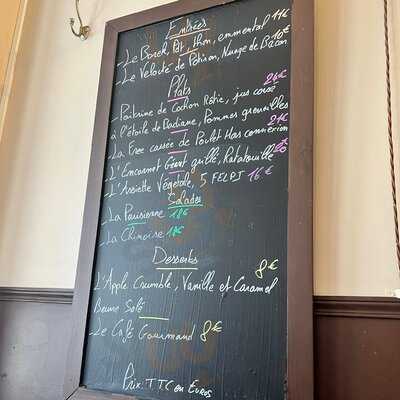 Entrées
- Le Borek, Pdt, thon, emmental 11€
- Le Velouté de Potiron, Nuage de Bacon 10€
Plats
- Poitrine de Cochon Rôtie, jus corsé 26€
à l'étoile de Badiane, Pommes grenailles
- La Free cassée de Poulet Has connexion 21€
- L'Encornet Géant grillé, Ratatouille
- L'Assiette Végétale, 5 16€
Salades
- La Parisienne 18€
- La Chinoise 18€
Desserts
- L'Apple Crumble, Vanille et Caramel 8€
Beurre Salé
- Le Café Gourmand 8€
Prix: TTC en Euros